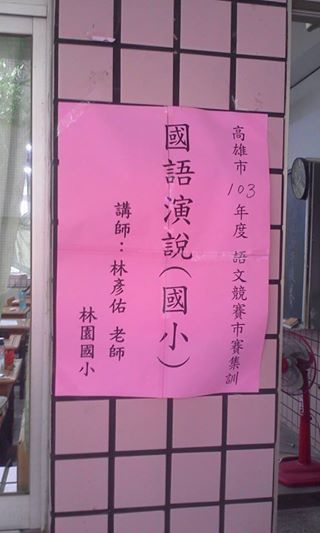 高雄市 103 年度 語文競賽市賽集訓
國語演說(國小)
講師：林彥佑 老師
林園國小